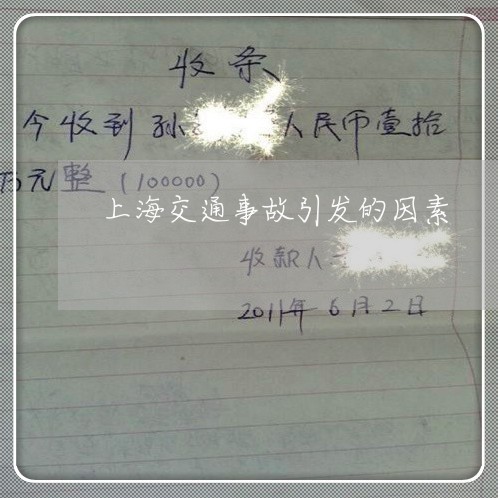 收条
今收到孙 人民币壹拾
万元整(100000)
上海交通事故引发的因素
收款人
2011年6月2日